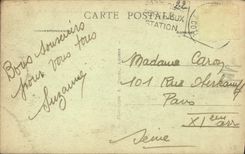 CARTE POSTALE
STATION
Bons souvenirs
pour vous tous
Suzanne
Madame Caron
101 Rue Oberkampf
Paris
XIe arr
Seine